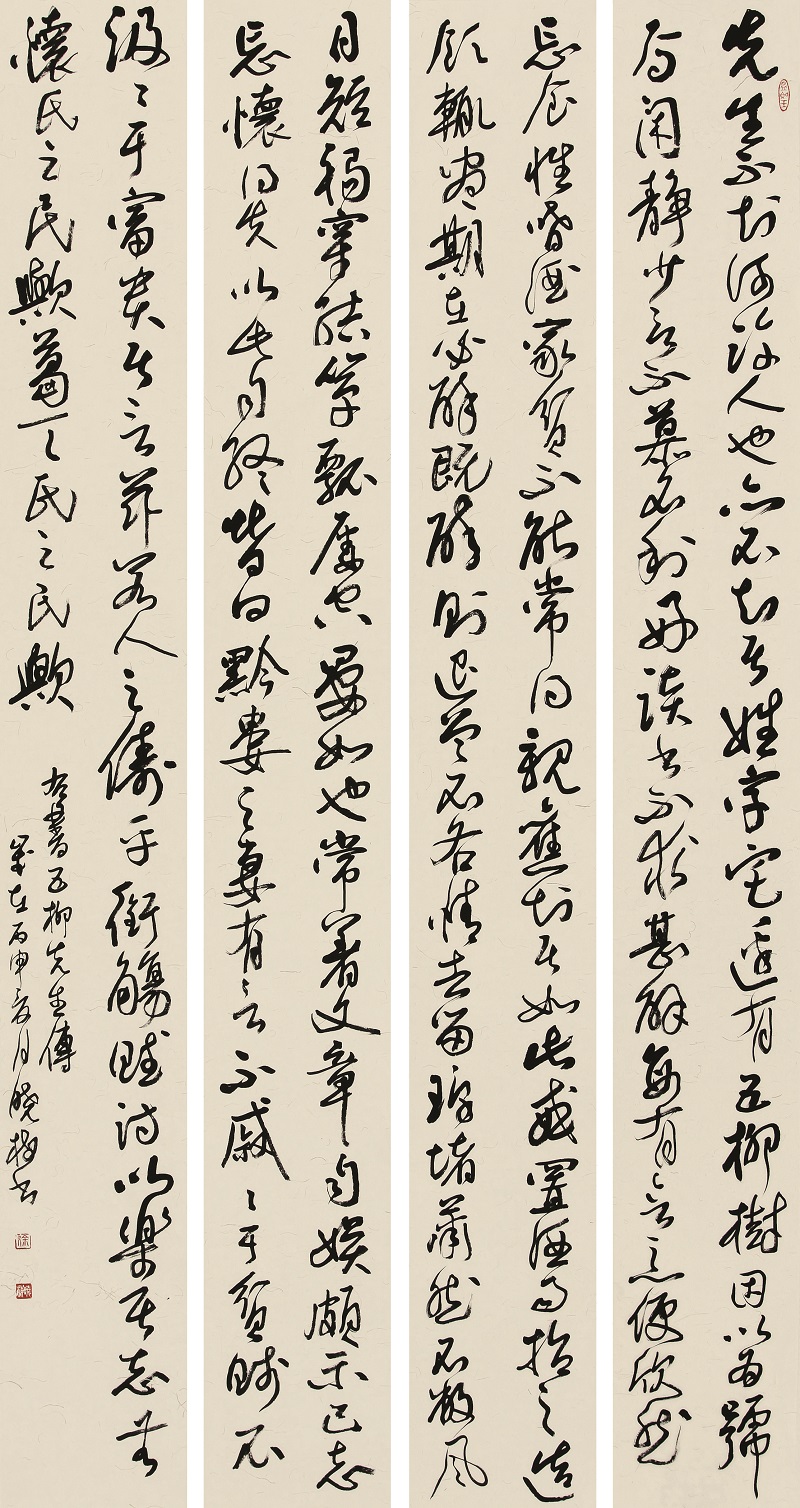 先生不知何許人也亦不知其姓字宅邊有五柳樹因以為號
焉閑靜少言不慕名利好讀書不求甚解每有會意便欣然
忘食性嗜酒家貧不能常得親舊知其如此或置酒而招之造
飲輒盡期在必醉既醉則退曾不吝情去留環堵蕭然不蔽風
日短褐穿結簞瓢屢空晏如也常著文章自娛頗示己志
忘懷得失以此自終贊曰黔婁之妻有言不戚々于貧賤不
汲々于富貴其言茲若人之儔乎銜觴賦詩以樂其志無
懷氏之民歟葛天氏之民歟
右書五柳先生傳
歲在丙申夏月曉梅書